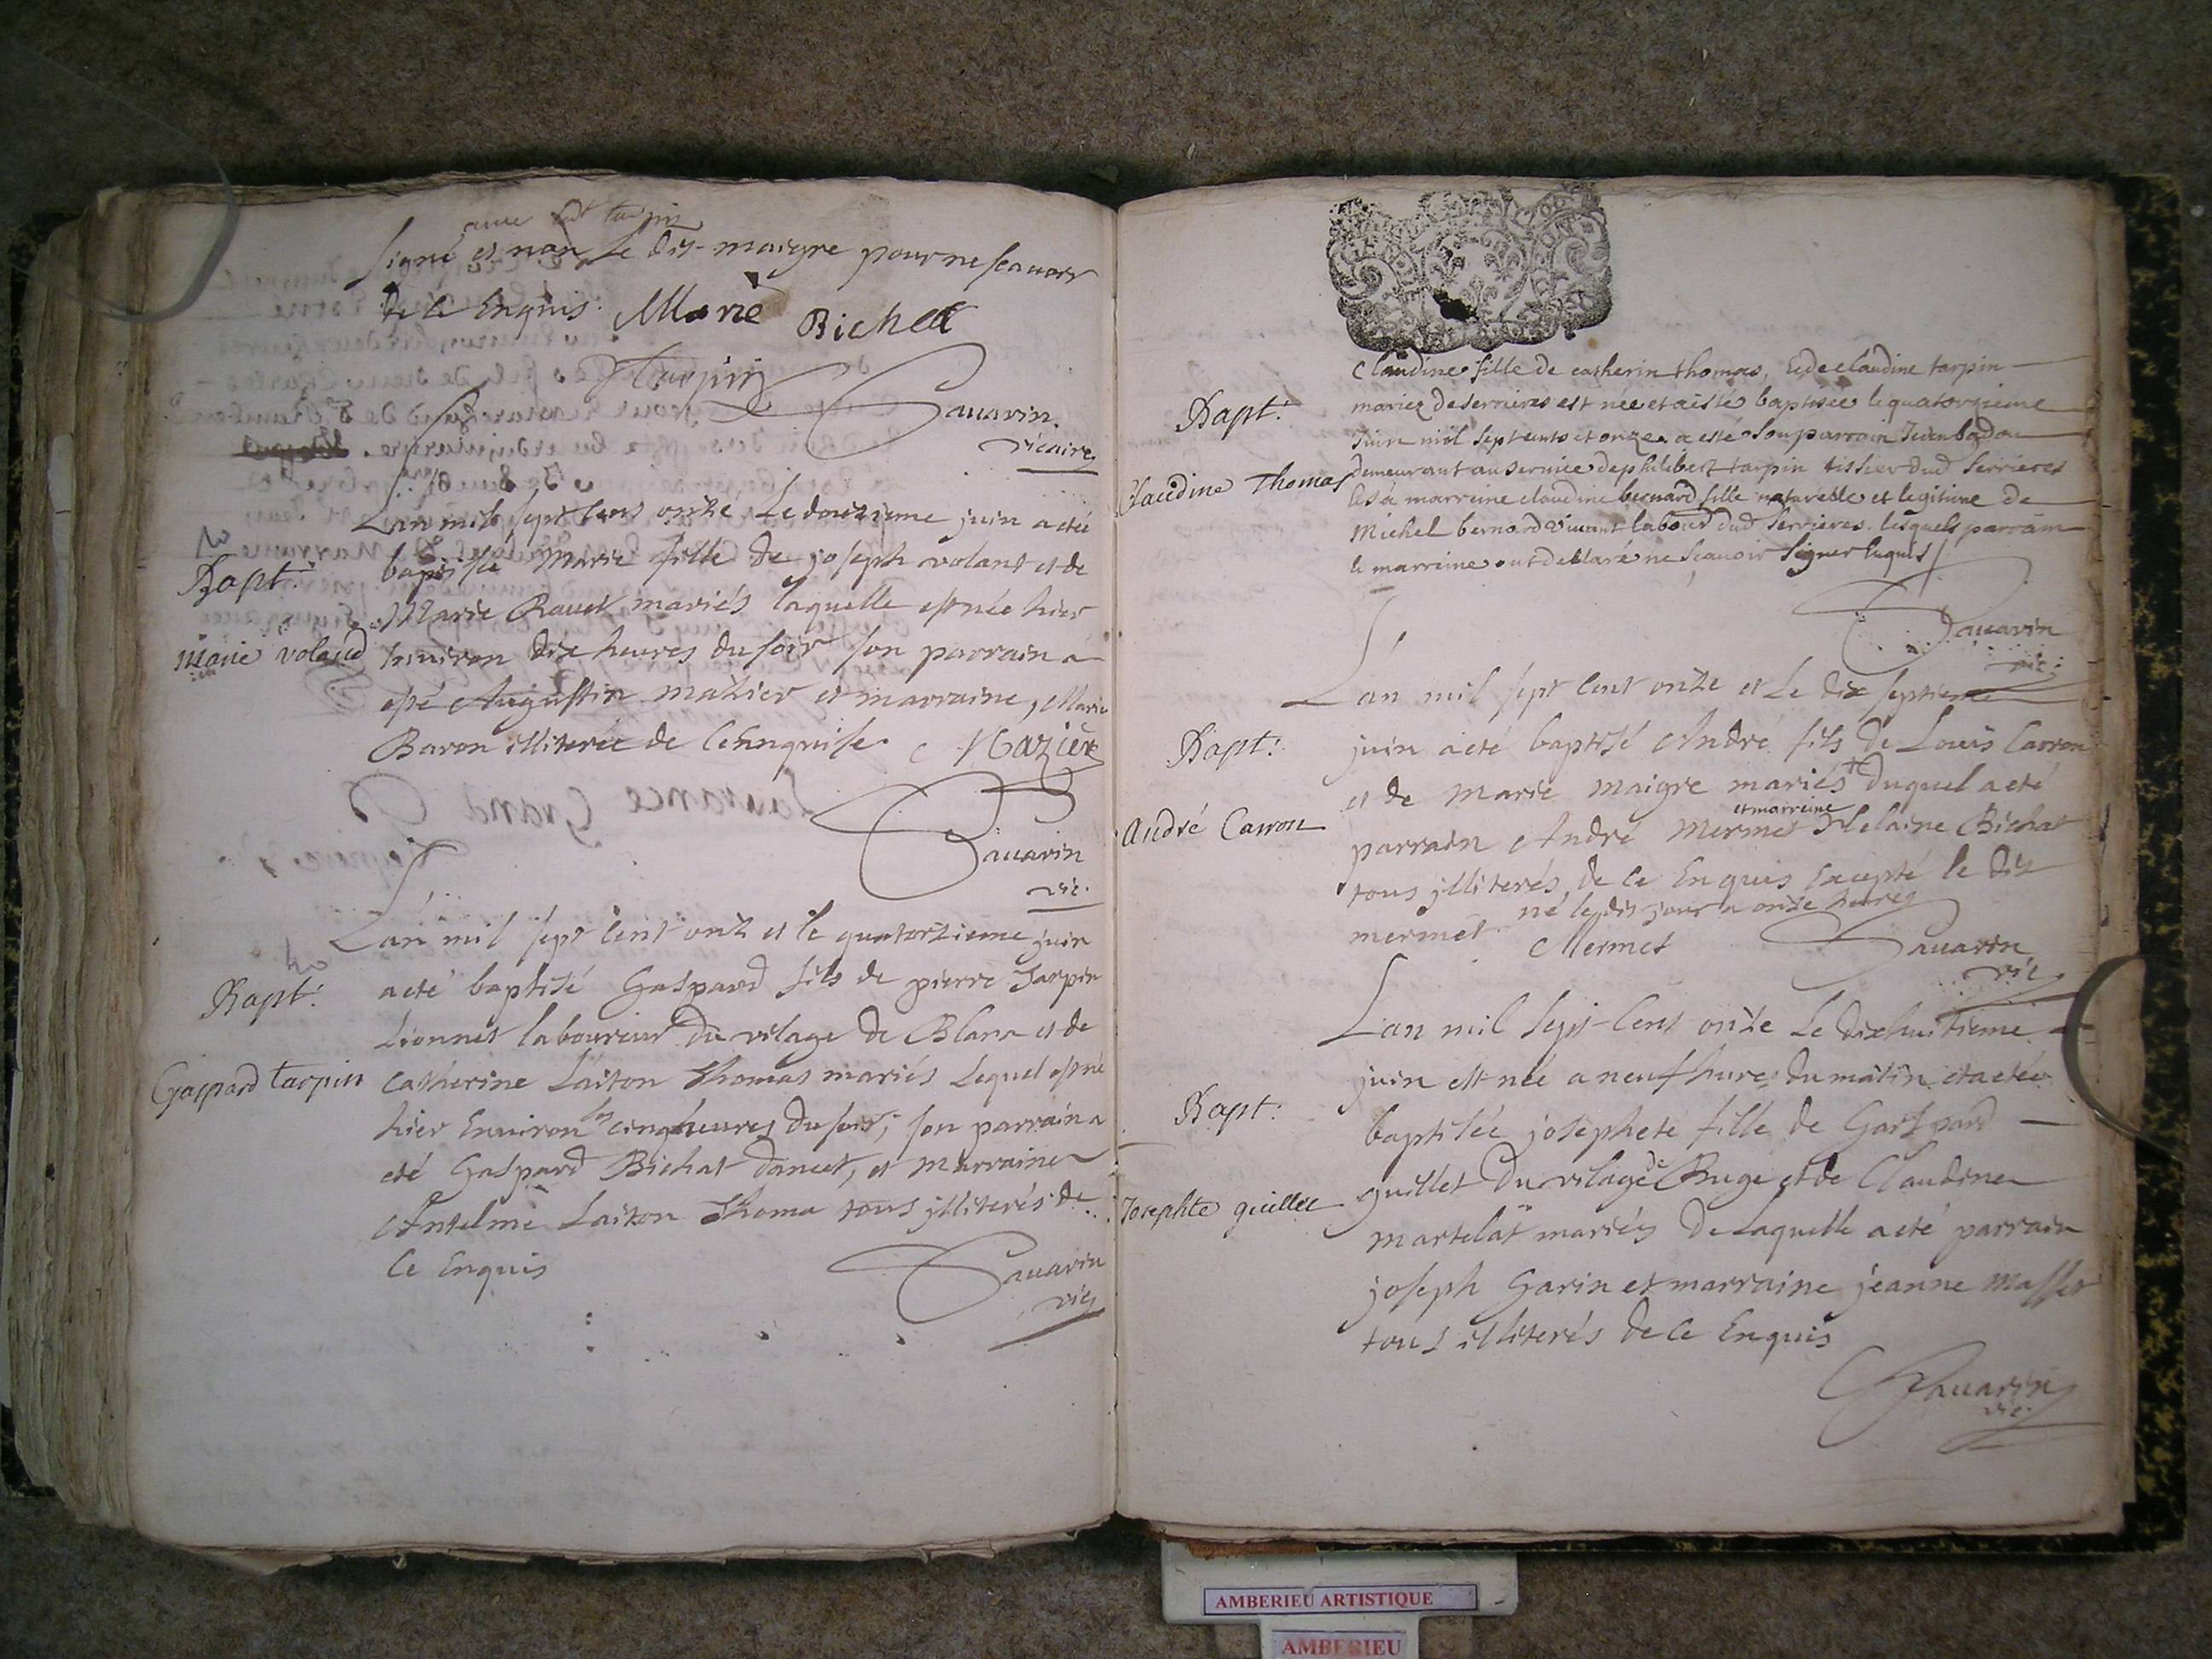 avec led.t tarpin
signé et non le dit maigre pour ne scavoir
de ce Enquis. Marie Bichat
Tarpin
Savarin
vicaire
Lan mil sept cens onze Le douzieme juin a eté
Bapt.
baptisée Marie fille de joseph volant et de
Marie Ravet mariés laquelle est née hier
Marie voland
Environ dix heures du soir son parrain a
esté Augustin mazier et marraine, Marie
Baron illiterée de ce Enquise Mazier
Savarin
vic.
Lan mil sept cent onze et le quatorzieme juin
Bapt.
a eté baptisé Gaspard fils de pierre Tarpin
Lionnet laboureur du vilage de Blana et de
Gaspard tarpin
Catherine Laiton Thomas mariés Lequel est né
hier Environ les cinq heures du soir; son parrain a
eté Gaspard Bichat dancet, et Marraine
Antelme Laiton Thoma tous jlliterés de
ce Enquis
Savarin
vic
Claudine fille de catherin thomas, et de claudine tarpin
Bapt.
mariez de serrieres est née et a esté baptisée le quatorzieme
Juin mil sept cents et onze a esté son parrain Jean badou
demeurant au service de philibert tarpin tissier dud serrieres
Claudine Thomas
et sa marreine claudine bernard fille naturelle et legitime de
Michel bernard vivant labour dud serrieres. lesquels parrain
et marreine ont déclaré ne sçavoir signer Enquis
Savarin
vic.
Lan mil sept cent onze et Le dix septieme
Bapt.
juin a eté baptisé André fils de Louis Carron
et de Marie Maigre mariés duquel a eté
et marreine
André Carron
parrain André Mermet Helaine Bichat
tous jlliterés de ce Enquis Excepté le dit
né le dit jour a onze heures
mermet. Mermet
Savarin
vic
Lan mil sept-cent onze Le dixhuitieme
juin est née a neuf heures du matin et a eté
Bapt.
baptisée josephete fille de Gaspard
guillet du vilage de Bugé et de Claudine
Josephte guillet
martelat mariés de Laquelle a eté parrain
joseph Garin et marraine jeanne Masset
tous illiterés de ce Enquis
Savarin
vic.
AMBERIEU ARTISTIQUE
AMBERIEU